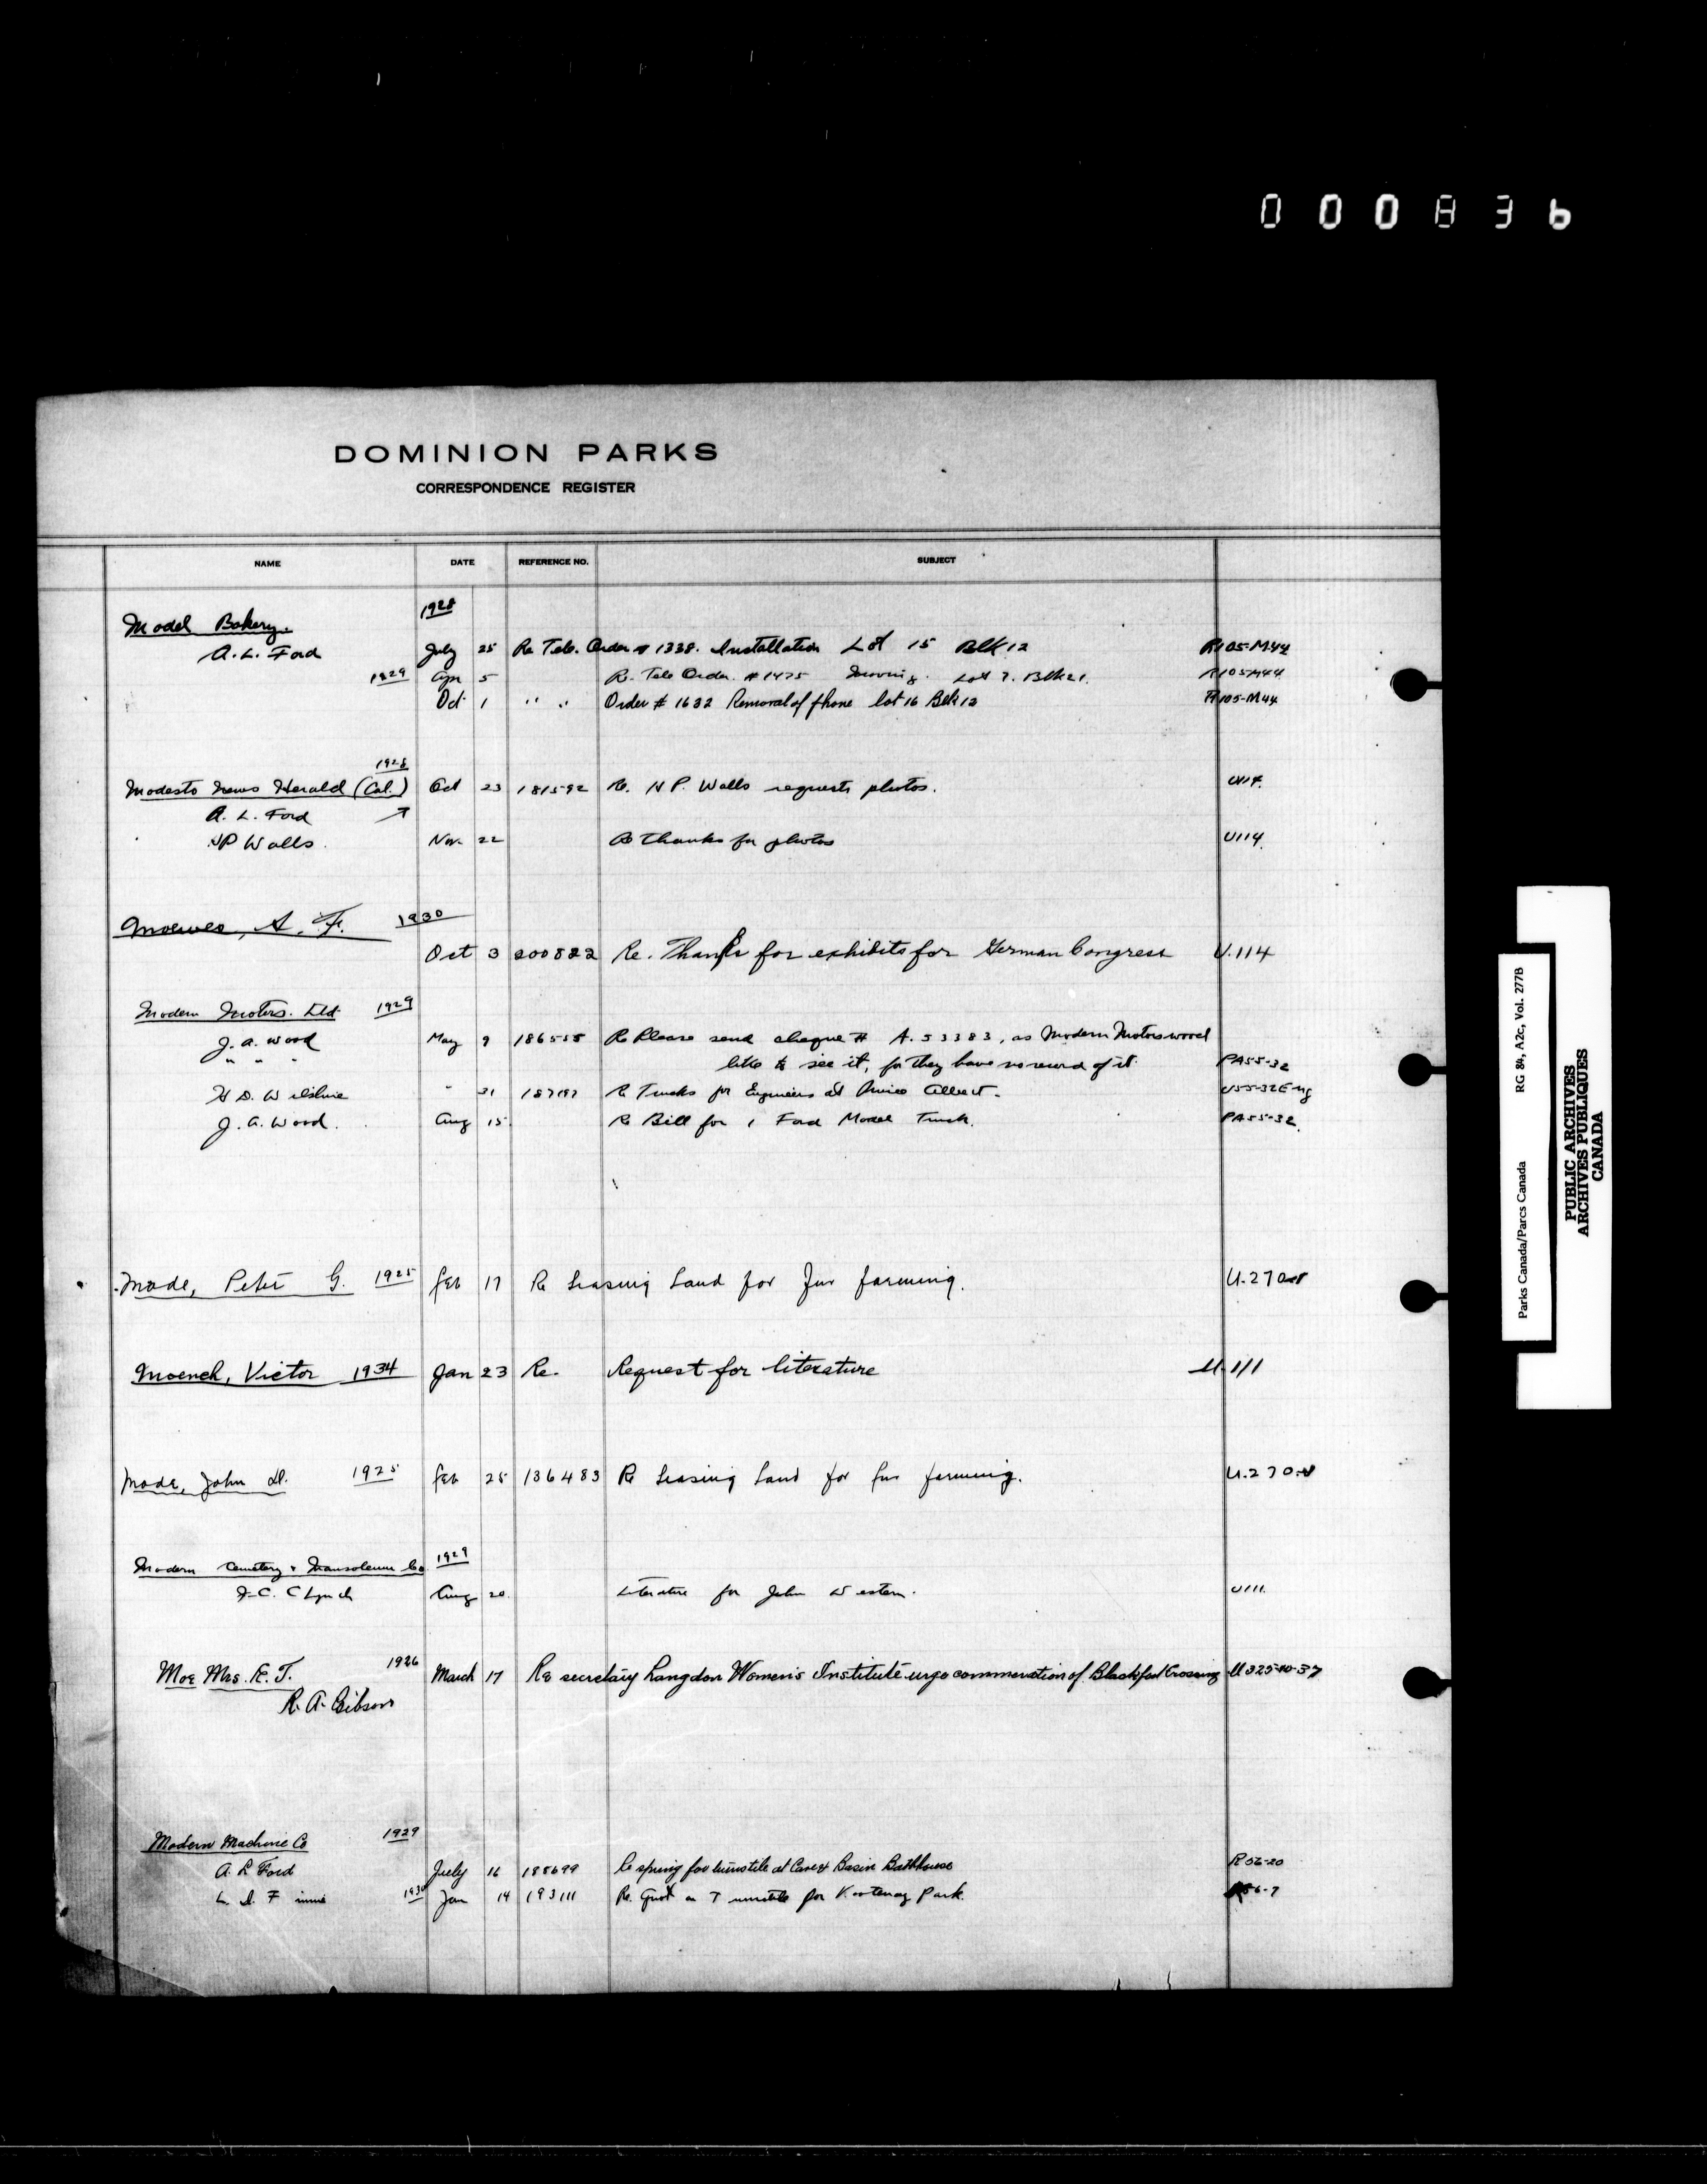 000836
DOMINION PARKS
CORRESPONDENCE REGISTER
NAME DATE REFERENCE NO. SUBJECT
Model Bakery. 1928
A. L. Ford July 25 Re Tele. Order # 1338. Installation Lot 15 Blk 12 R105-M44
1929 Apr 5 Re. Tele Order. # 1475 Moving. Lot 7. Blk 21. R105M44
Oct 1 " " Order # 1632 Removal of phone lot 16 Blk 12 R105-M44
1928
Modesto News Herald (Cal.) Oct 23 181592 Re. H P. Walls requests photos. U114.
A. L. Ford
HP Walls. Nov. 22 Re Thanks for photos U114.
Moewes, A. F. 1930
Oct 3 200822 Re. Thanks for exhibits for German Congress U.114
Modern Motors. Ltd. 1929
J. A. Wood May 9 186555 Re Please send cheque # A. 53383, as Modern Motors woud
" " " like to see it, for they have no record of it. PA55-32
H D. Wilshire " 31 Re Trucks for Engineers at Prince Albert. U55-32Eng
J. A. Wood. Aug 15. Re Bill for 1 Ford Model Truck. PA55-32.
Made, Peter G. 1925 Feb 17 Re Leasing Land for Fur farming. U.270
Moench, Victor 1934 Jan 23 Re. Request for literature U-111
Made, John D. 1925 Feb 25 136483 Re Leasing Land for fur farming. U.270
Modern Cemetery & Mausoleum Co 1929
C Lynch Aug 20. Literature for John Western. U111.
Moe Mrs. E. T. 1926 March 17 Re secretary Langdon Women's Institute urge commeration of Blackfoot Crossing U325-10-37
R. A. Gibson
Modern Machine Co 1929
A. L Ford July 16 188699 Re spring for turnstile at Cave & Basin Bathhouse R56-20
1930 Jan 14 193111 Re. Quot on Turnstile for Kootenay Park. R56-7
Parks Canada/Parcs Canada RG 84, A2c, Vol. 277B
PUBLIC ARCHIVES
ARCHIVES PUBLIQUES
CANADA